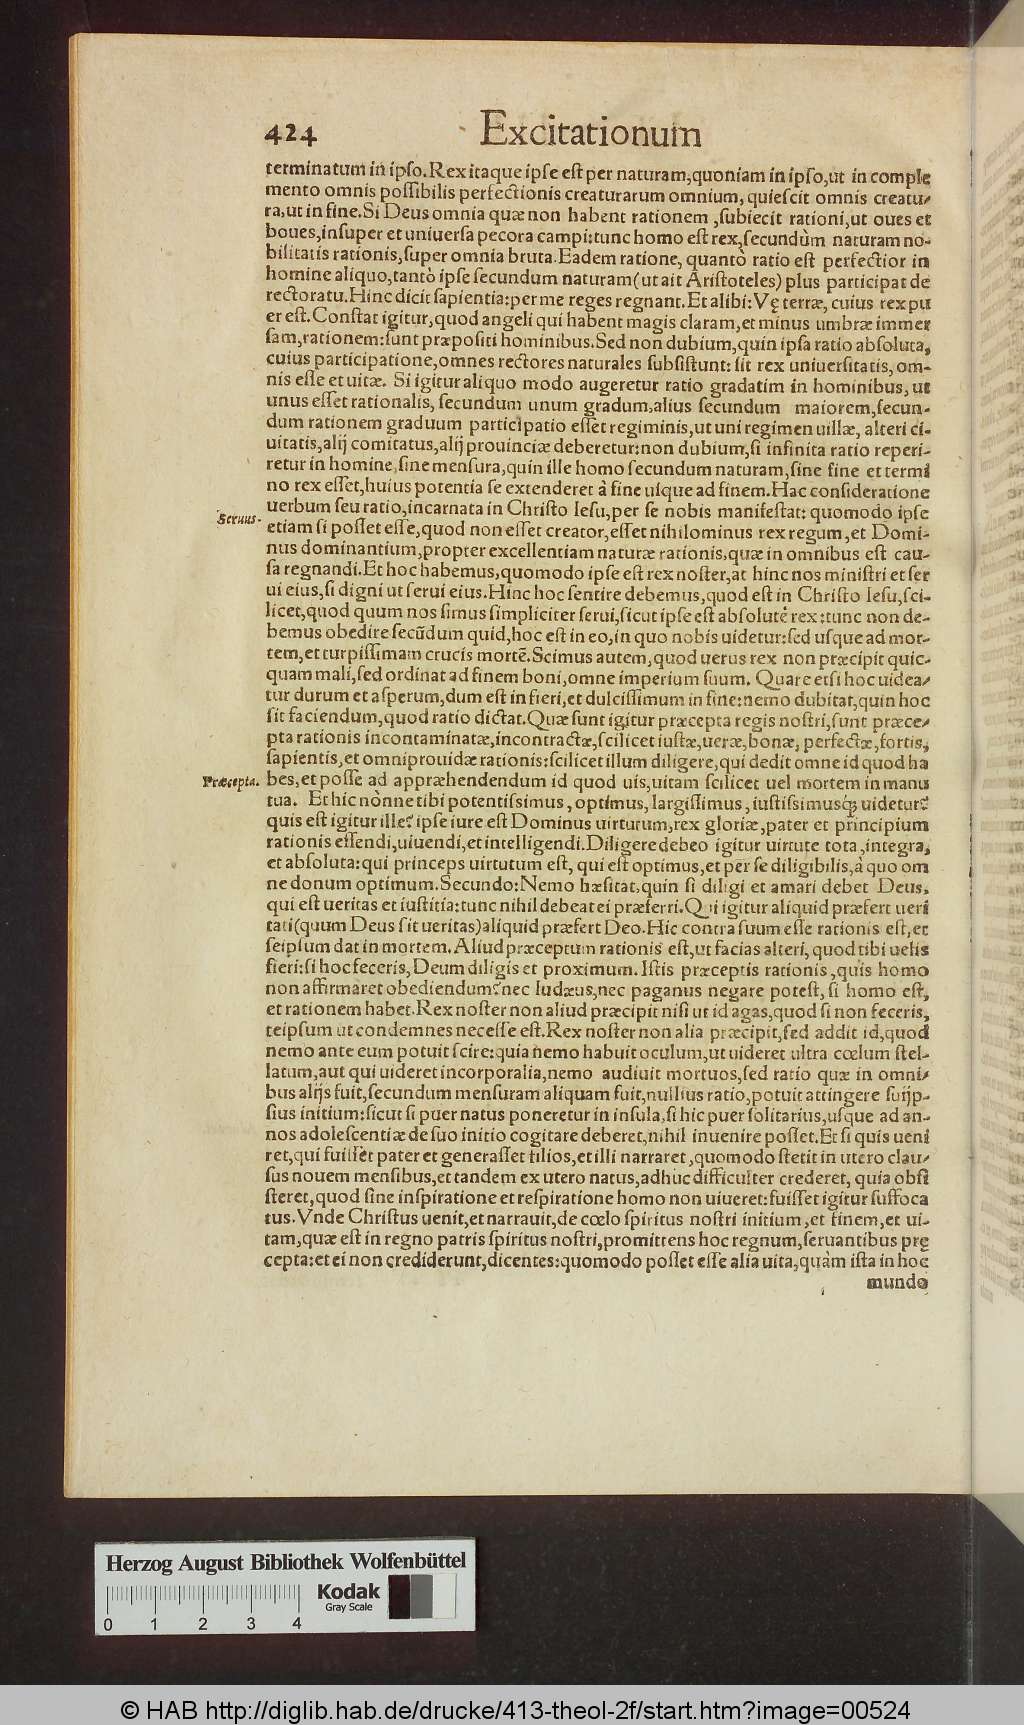 424 Excitationum
terminatum in ipſo. Rex itaque ipſe eſt per naturam, quoniam in ipſo, ut in comple
mento omnis poſſibilis perfectionis creaturarum omnium, quieſcit omnis creatu-
ra, ut in fine. Si Deus omnia quæ non habent rationem, ſubiecit rationi, ut oues et
boues, inſuper et uniuerſa pecora campi: tunc homo eſt rex, ſecundùm naturam no-
bilitatis rationis, ſuper omnia bruta. Eadem ratione, quantò ratio eſt perfectior in
homine aliquo, tantò ipſe ſecundum naturam (ut ait Ariſtoteles) plus participat de
rectoratu. Hinc dicit ſapientia: per me reges regnant. Et alibi: Vę terræ, cuius rex pu
er eſt. Conſtat igitur, quod angeli qui habent magis claram, et minus umbræ immer
ſam, rationem: ſunt præpoſiti hominibus. Sed non dubium, quin ipſa ratio abſoluta,
cuius participatione, omnes rectores naturales ſubſiſtunt: ſit rex uniuerſitatis, om-
nis eſſe et uitæ. Si igitur aliquo modo augeretur ratio gradatim in hominibus, ut
unus eſſet rationalis, ſecundum unum gradum, alius ſecundum maiorem, ſecun-
dum rationem graduum participatio eſſet regiminis, ut uni regimen uillæ, alteri ci-
uitatis, alij comitatus, alij prouinciæ deberetur: non dubium, ſi infinita ratio reperi-
retur in homine, ſine menſura, quin ille homo ſecundum naturam, ſine fine et termi
no rex eſſet, huius potentia ſe extenderet à fine uſque ad finem. Hac conſideratione
uerbum ſeu ratio, incarnata in Chriſto Ieſu, per ſe nobis manifeſtat: quomodo ipſe
Seruus. etiam ſi poſſet eſſe, quod non eſſet creator, eſſet nihilominus rex regum, et Domi-
nus dominantium, propter excellentiam naturæ rationis, quæ in omnibus eſt cau-
ſa regnandi. Et hoc habemus, quomodo ipſe eſt rex noſter, at hinc nos miniſtri et ſer
ui eius, ſi digni ut ſerui eius. Hinc hoc ſentire debemus, quod eſt in Chriſto Ieſu, ſci-
licet, quod quum nos ſimus ſimpliciter ſerui, ſicut ipſe eſt abſolutè rex: tunc non de-
bemus obedire ſecũdum quid, hoc eſt in eo, in quo nobis uidetur: ſed uſque ad mor-
tem, et turpiſſimam crucis mortẽ. Scimus autem, quod uerus rex non præcipit quic-
quam mali, ſed ordinat ad finem boni, omne imperium ſuum. Quare etſi hoc uidea-
tur durum et aſperum, dum eſt in fieri, et dulciſſimum in fine: nemo dubitat, quin hoc
ſit faciendum, quod ratio dictat. Quæ ſunt igitur præcepta regis noſtri, ſunt præce-
pta rationis incontaminatæ, incontractæ, ſcilicet iuſtæ, ueræ, bonæ, perfectæ, fortis,
ſapientis, et omniprouidæ rationis: ſcilicet illum diligere, qui dedit omne id quod ha
Præcepta. bes, et poſſe ad appræhendendum id quod uis, uitam ſcilicet uel mortem in manu
tua. Et hic nònne tibi potentiſsimus, optimus, largiſſimus, iuſtiſsimusq́ uidetur?
quis eſt igitur ille? ipſe iure eſt Dominus uirtutum, rex gloriæ, pater et principium
rationis eſſendi, uiuendi, et intelligendi. Diligere debeo igitur uirtute tota, integra,
et abſoluta: qui princeps uirtutum eſt, qui eſt optimus, et per ſe diligibilis, à quo om
ne donum optimum. Secundo: Nemo hæſitat, quin ſi diligi et amari debet Deus,
qui eſt ueritas et iuſtitia: tunc nihil debeat ei præferri. Qui igitur aliquid præfert ueri
tati (quum Deus ſit ueritas) aliquid præfert Deo. Hic contra ſuum eſſe rationis eſt, et
ſeipſum dat in mortem. Aliud præceptum rationis eſt, ut facias alteri, quod tibi uelis
fieri: ſi hoc feceris, Deum diligis et proximum. Iſtis præceptis rationis, quis homo
non affirmaret obediendum? nec Iudæus, nec paganus negare poteſt, ſi homo eſt,
et rationem habet. Rex noſter non aliud præcipit niſi ut id agas, quod ſi non feceris,
teipſum ut condemnes neceſſe eſt. Rex noſter non alia præcipit, ſed addit id, quod
nemo ante eum potuit ſcire: quia nemo habuit oculum, ut uideret ultra cœlum ſtel-
latum, aut qui uideret incorporalia, nemo audiuit mortuos, ſed ratio quæ in omni-
bus alijs fuit, ſecundum menſuram aliquam fuit, nullius ratio, potuit attingere ſuijp-
ſius initium: ſicut ſi puer natus poneretur in inſula, ſi hic puer ſolitarius, uſque ad an-
nos adoleſcentiæ de ſuo initio cogitare deberet, nihil inuenire poſſet. Et ſi quis ueni
ret, qui fuiſſet pater et generaſſet filios, et illi narraret, quomodo ſtetit in utero clau-
ſus nouem menſibus, et tandem ex utero natus, adhuc difficulter crederet, quia obſi
ſteret, quod ſine inſpiratione et reſpiratione homo non uiueret: fuiſſet igitur ſuffoca
tus. Vnde Chriſtus uenit, et narrauit, de cœlo ſpiritus noſtri initium, et finem, et ui-
tam, quæ eſt in regno patris ſpiritus noſtri, promittens hoc regnum, ſeruantibus prę
cepta: et ei non crediderunt, dicentes: quomodo poſſet eſſe alia uita, quàm iſta in hoc
mundo
Herzog August Bibliothek Wolfenbüttel
Kodak
Gray Scale
0 1 2 3 4
© HAB http://diglib.hab.de/drucke/413-theol-2f/start.htm?image=00524